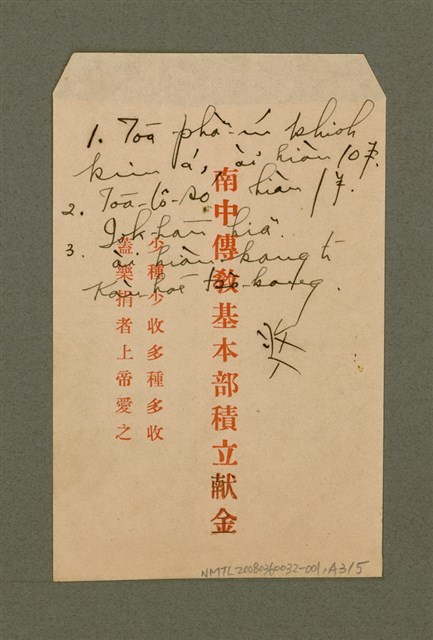 1. Toā phā-ní khioh
kim á, ài hiàn 10 
2. Toā-lô-so hiàn 1 
3. Iok-hān kiâ
ài hiàn kang tī
Kàu-hoē
南中傳教基本部積立献金
少種少收多種多收
蓋樂捐者上帝愛之
NMTL20080360032-001, A3/5